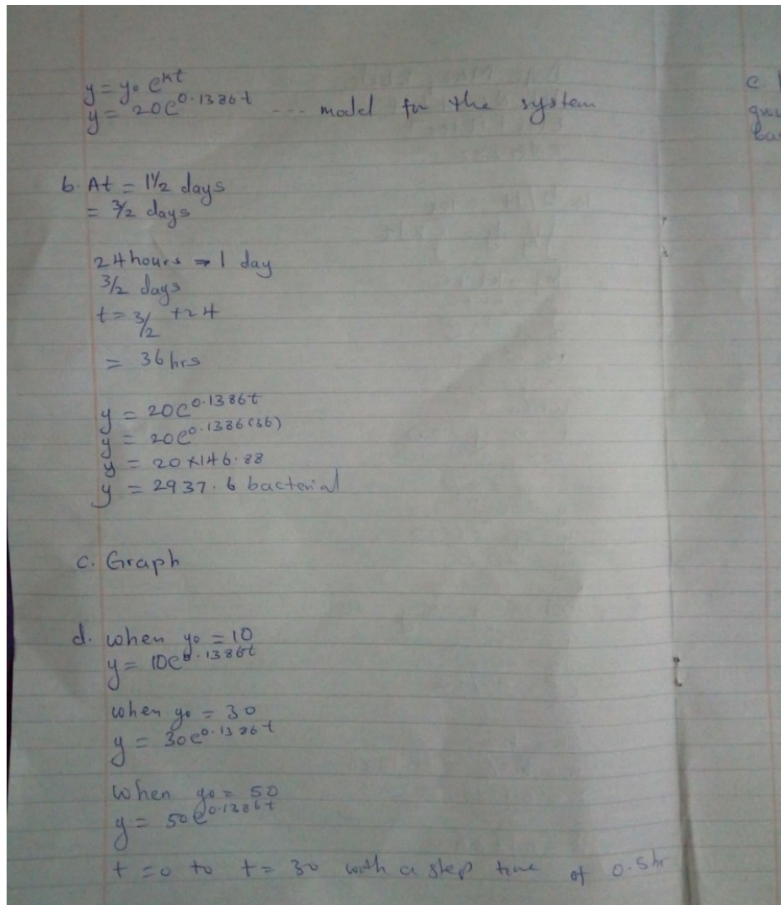 y = y₀ e^kt
y = 20e^0.1386t --- model for the system
b. At = 1½ days
= 3/2 days
24 hours → 1 day
3/2 days
t = 3/2 + 24
= 36 hrs
y = 20e^0.1386t
y = 20e^0.1386(36)
y = 20 × 146.88
y = 2937.6 bacterial
c. Graph
d. when y₀ = 10
y = 10e^0.1386t
when y₀ = 30
y = 30e^0.1386t
when y₀ = 50
y = 50e^0.1386t
t = 0 to t = 30 with a step time of 0.5hr
c